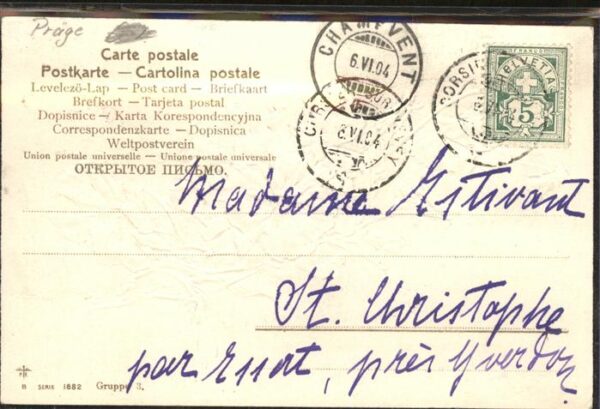 Präge
Carte postale
Postkarte — Cartolina postale
Levelező-Lap — Post card — Briefkaart
Brefkort — Tarjeta postal
Dopisnice — Karta Korespondencyjna
Correspondenzkarte — Dopisnica
Weltpostverein
Union postale universelle — Unione postale universale
ОТКРЫТОЕ ПИСЬМО.
CHAMPVENT
6.VI.04
6.VI.04
HELVETIA
FRANCO
5
Madame Estivant
St. Christophe
par Essert, près Yverdon
B SERIE 1682 Gruppe 3.